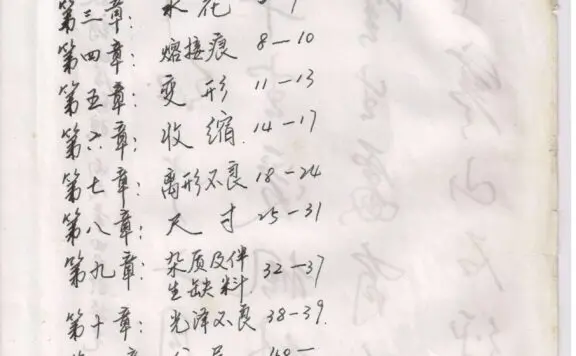 第三章： 水花
第四章： 熔接痕 8—10
第五章： 变形 11—13
第六章： 收缩 14—17
第七章： 离形不良 18—24
第八章： 尺寸 25—31
第九章： 杂质及伴生缺料 32—37
第十章： 光泽不良 38—39.